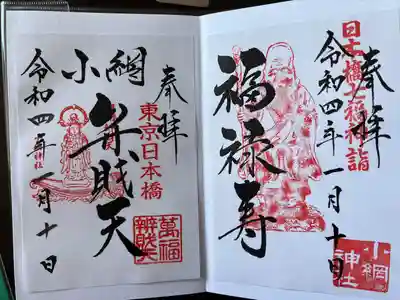 奉拝
日本橋七福神詣
福禄寿
令和四年一月十日
小網神社
奉拝
東京日本橋
小網
弁財天
萬福
辨財天
令和四年一月十日